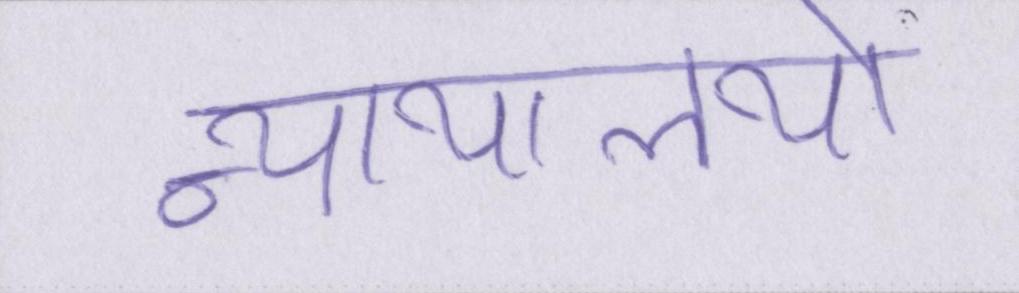 न्यायालयों